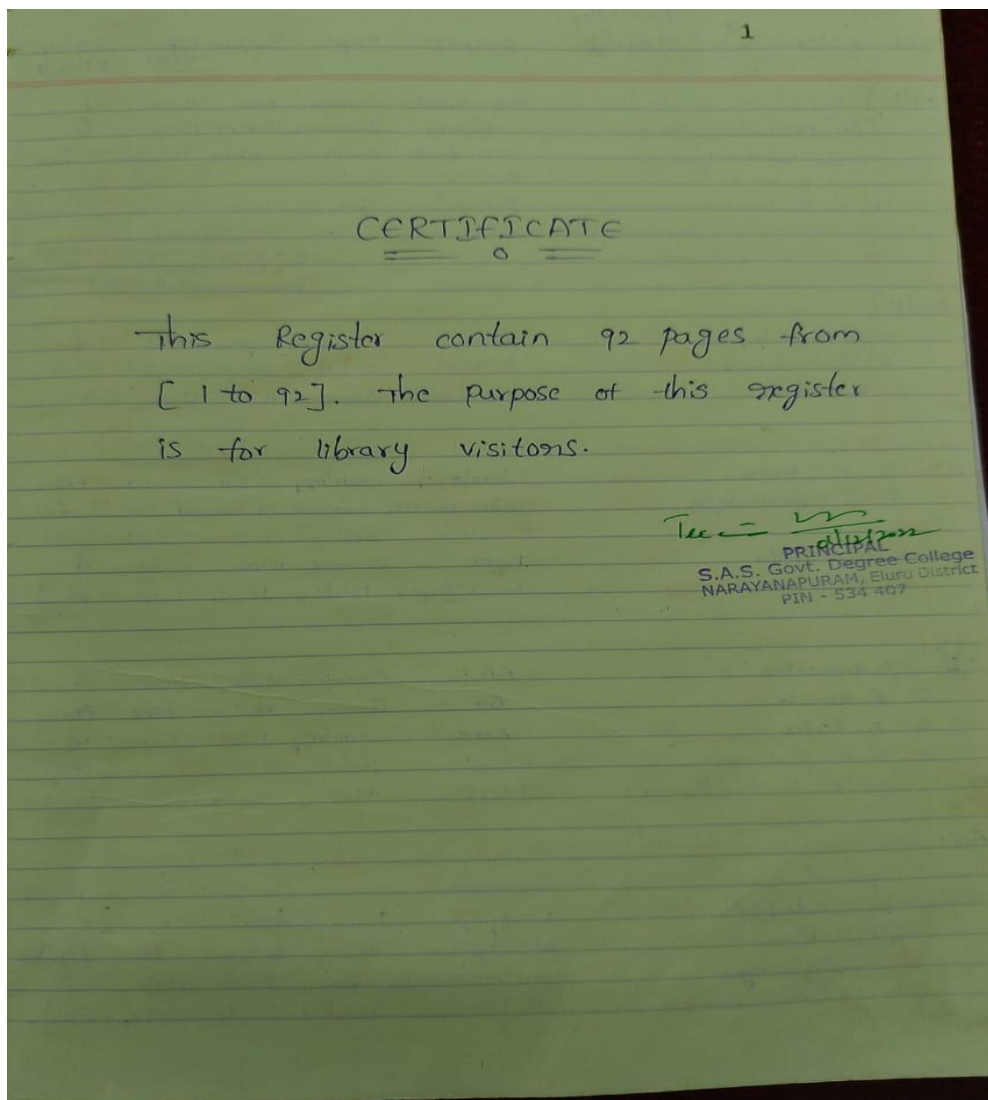 1
CERTIFICATE
This Register contain 92 pages from
[ 1 to 92]. The purpose of this register
is for library visitors.
PRINCIPAL
S.A.S. Govt. Degree College
NARAYANAPURAM, Eluru District
PIN - 534 407